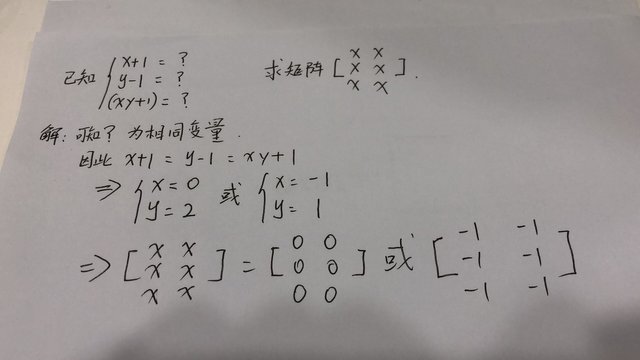 已知 { x+1 = ?
y-1 = ?
(xy+1) = ?
求矩阵 [ x x
x x
x x ].
解: 可知? 为相同变量.
因此 x+1 = y-1 = xy+1
⇒ { x=0 或 { x=-1
y=2 y=1
⇒ [ x x
x x
x x ] = [ 0 0
0 0
0 0 ] 或 [ -1 -1
-1 -1
-1 -1 ]